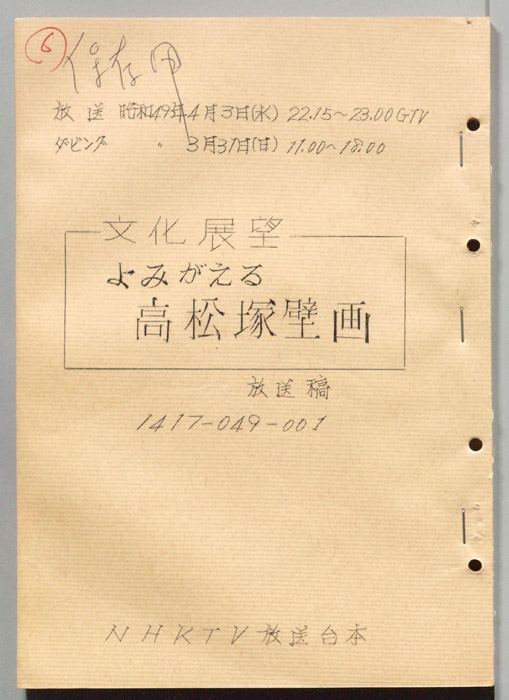 6
保存用
放送 昭和49年4月3日(水) 22.15~23.00 GTV
ダビング 〃 3月31日(日) 11.00~18.00
文化展望
よみがえる
高松塚壁画
放送稿
1417-049-001
NHKTV放送台本